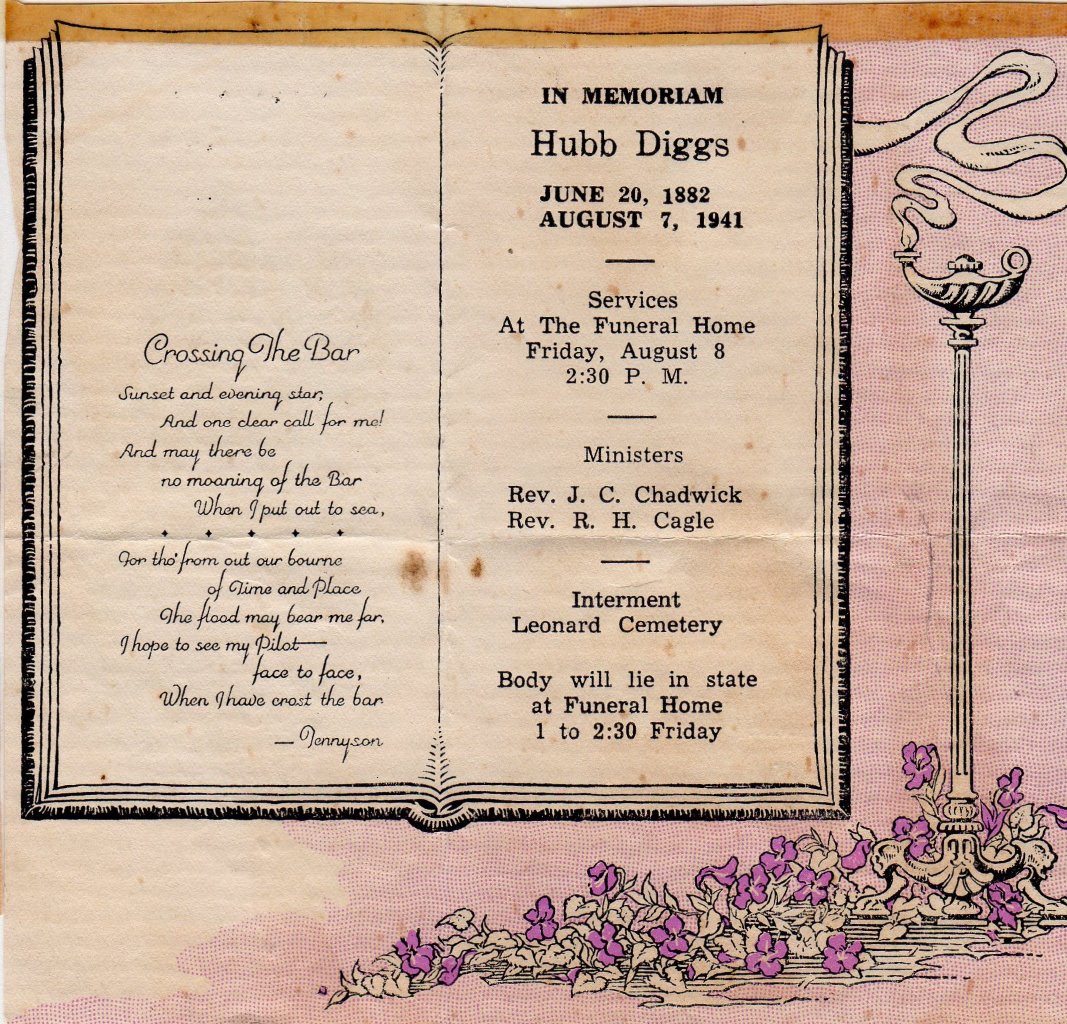 Crossing The Bar
Sunset and evening star,
And one clear call for me!
And may there be
no moaning of the Bar
When I put out to sea,
For tho' from out our bourne
of Time and Place
The flood may bear me far,
I hope to see my Pilot—
face to face,
When I have crost the bar
— Tennyson
IN MEMORIAM
Hubb Diggs
JUNE 20, 1882
AUGUST 7, 1941
Services
At The Funeral Home
Friday, August 8
2:30 P. M.
Ministers
Rev. J. C. Chadwick
Rev. R. H. Cagle
Interment
Leonard Cemetery
Body will lie in state
at Funeral Home
1 to 2:30 Friday